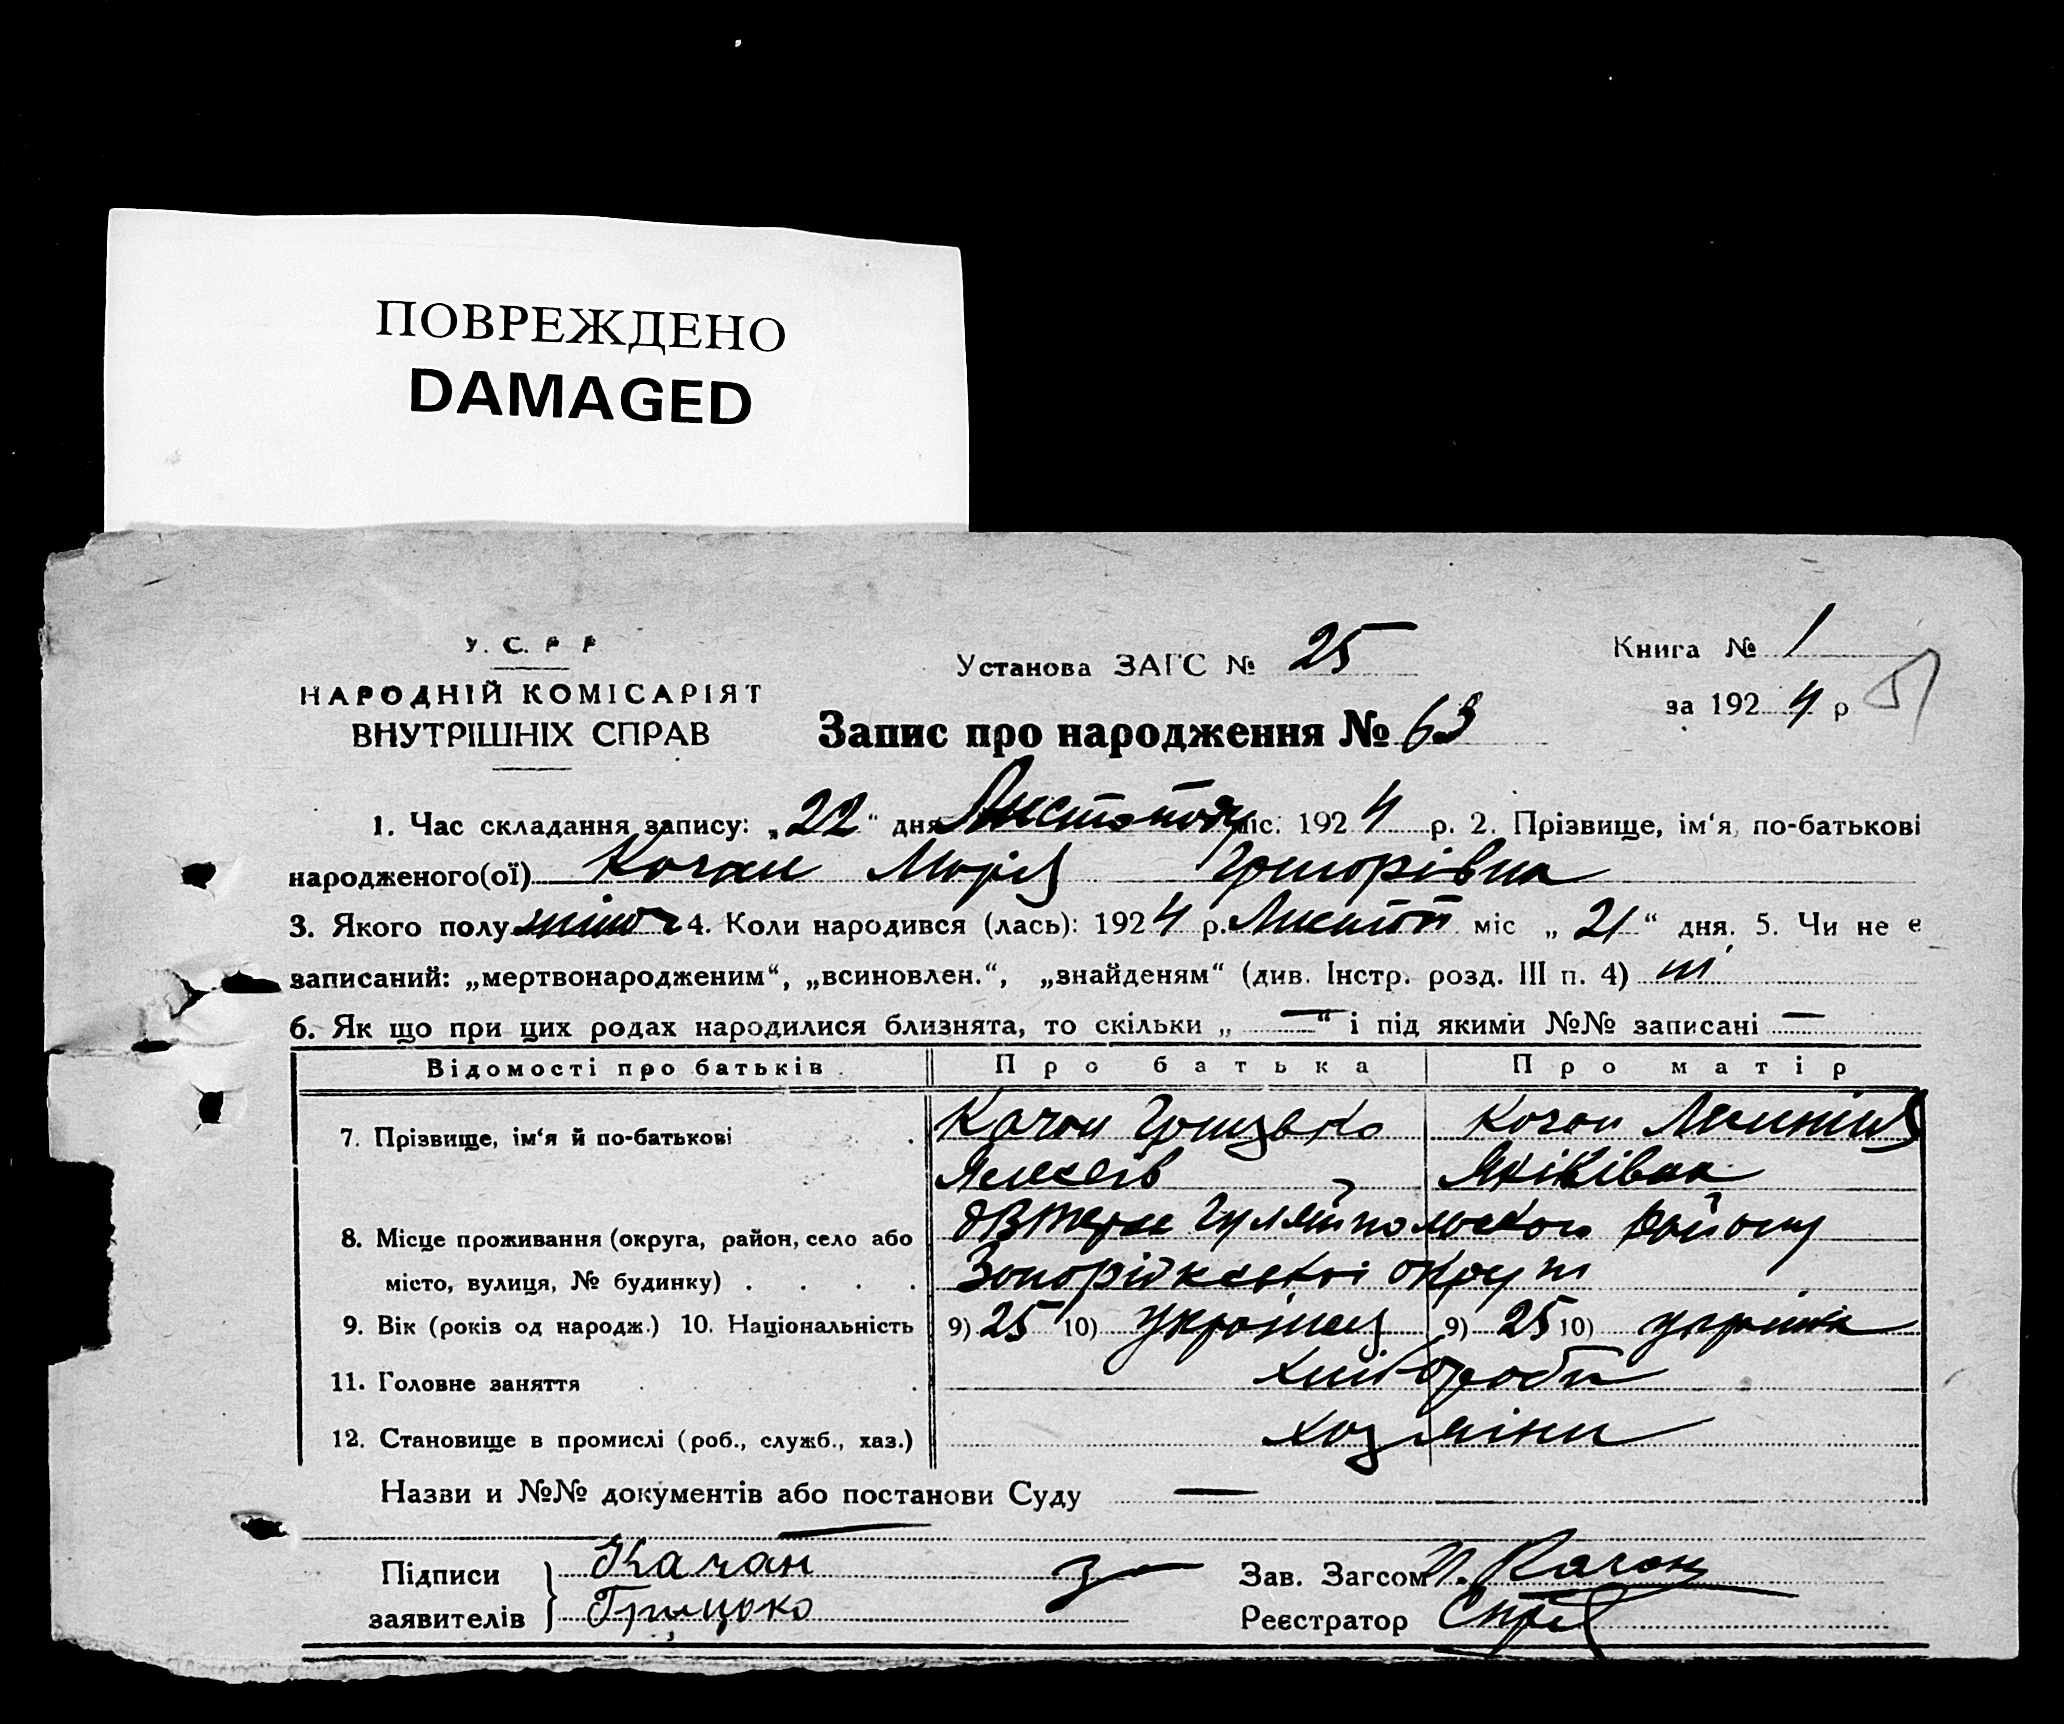 ПОВРЕЖДЕНО
DAMAGED
У. С. Р Р
НАРОДНІЙ КОМІСАРІЯТ
ВНУТРІШНІХ СПРАВ
Установа ЗАГС № 25
Книга № 1
за 1924 р
Запис про народження № 63
1. Час складання запису: „22“ дня Листопад міс. 1924 р. 2. Прізвище, ім‘я, по-батькові
народженого(ої) Качан Марія Григорівна
3. Якого полу жіноч 4. Коли народився (лась): 1924 р. Листоп міс „21“ дня. 5. Чи не є
записаний: „мертвонародженим“, „всиновлен.“, „знайденям“ (див. Інстр. розд. III п. 4) ні
6. Як що при цих родах народилися близнята, то скільки „ — “ і під якими №№ записані —
Відомості про батьків Про батька Про матір
7. Прізвище, ім‘я й по-батькові Качан Грицько Качан
Яківна
8. Місце проживання (округа, район, село або Гуляйпольского району
місто, вулиця, № будинку) Запоріжської округи
9. Вік (років од народж.) 10. Національність 9) 25 10) українец 9) 25 10) україн
11. Головне заняття хліброби
12. Становище в промислі (роб., служб., хаз.) хозяіни
Назви и №№ документів або постанови Суду —
Підписи Качан Зав. Загсом П. Качан
заявителів Грицько Реєстратор